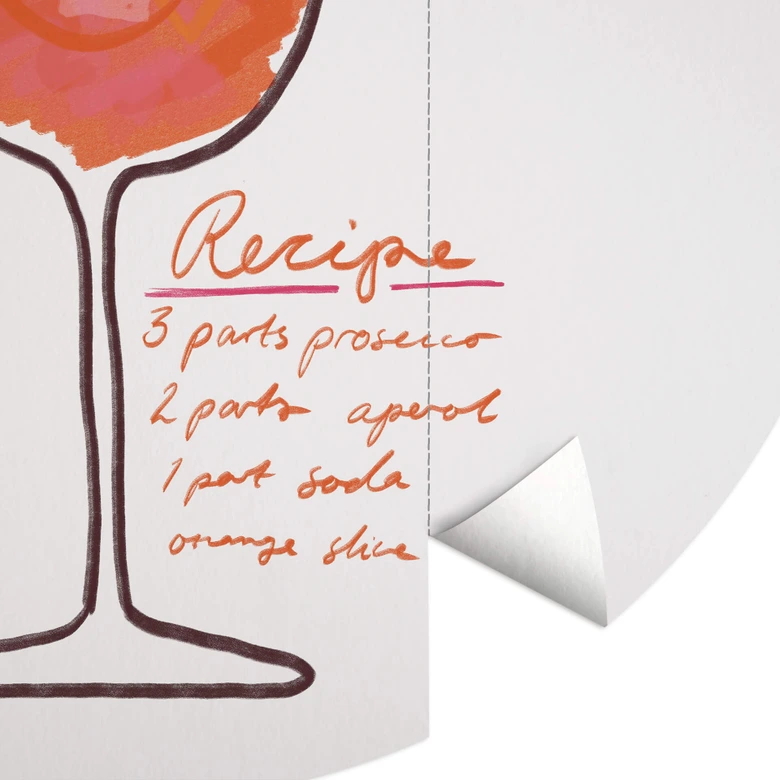 Recipe
3 parts prosecco
2 parts aperol
1 part soda
orange slice